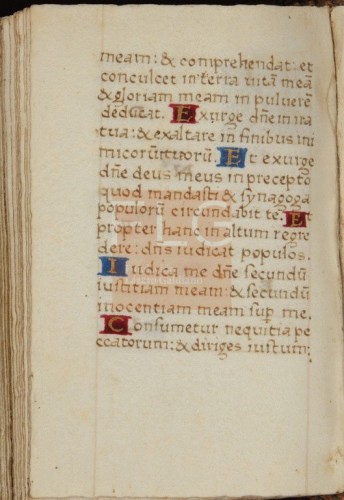 meam: & comprehendat: et
conculcet in terra uitā meā
& gloriam meam in puluerē
deducat. Exurge dñe in ira
tua: & exaltare in finibus ini
micorū tuorū. Et exurge
dñe deus meus in precepto
quod mandasti & synagoga
populorū circundabit te. Et
propter hanc in altum regre
dere: dñs iudicat populos.
Iudica me dñe secundū
iustitiam meam: & secundū
inocentiam meam sup̄ me.
Consumetur nequitia pe
ccatorum: & diriges iustum: